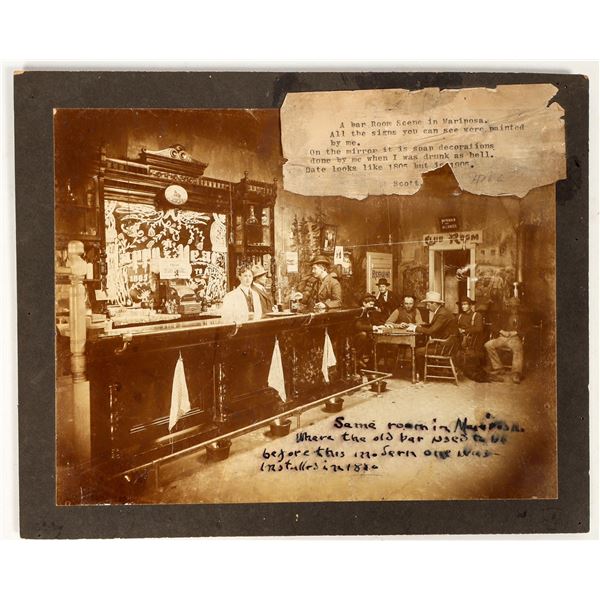 A bar Room Scene in Mariposa.
All the signs you can see were painted
by me.
On the mirror it is soap decorations
done by me when I was drunk as hell.
Date looks like 1805 but is 1905.
Scott
CLUB ROOM
Same room in Mariposa.
Where the old bar used to be
before this modern one was
installed in